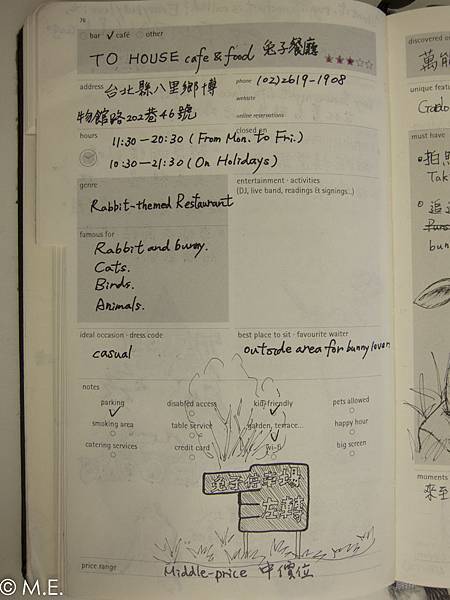 76
bar ✓ café other
TO HOUSE cafe & food 兔子餐廳 ★★★☆☆
address 台北縣八里鄉博
物館路202巷46號
phone (02)2619-1908
website
online reservations
hours
closed on
11:30-20:30 (From Mon. to Fri.)
10:30-21:30 (On Holidays)
genre
Rabbit-themed Restaurant
entertainment · activities
(DJ, live band, readings & signings...)
famous for
Rabbit and bunny.
Cats.
Birds.
Animals.
ideal occasion · dress code
casual
best place to sit · favourite waiter
outside area for bunny lover
notes
parking
disabled access
kid-friendly
pets allowed
smoking area
table service
garden, terrace...
happy hour
catering services
credit card
wi-fi
big screen
左轉
price range
Middle-price 中價位
discovered o
萬
unique featu
must have
拍照
Tak
追
bun
moments
來至
© M.E.